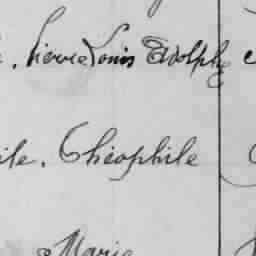 , Pierre Louis Adolphe
ile, Théophile
Marie